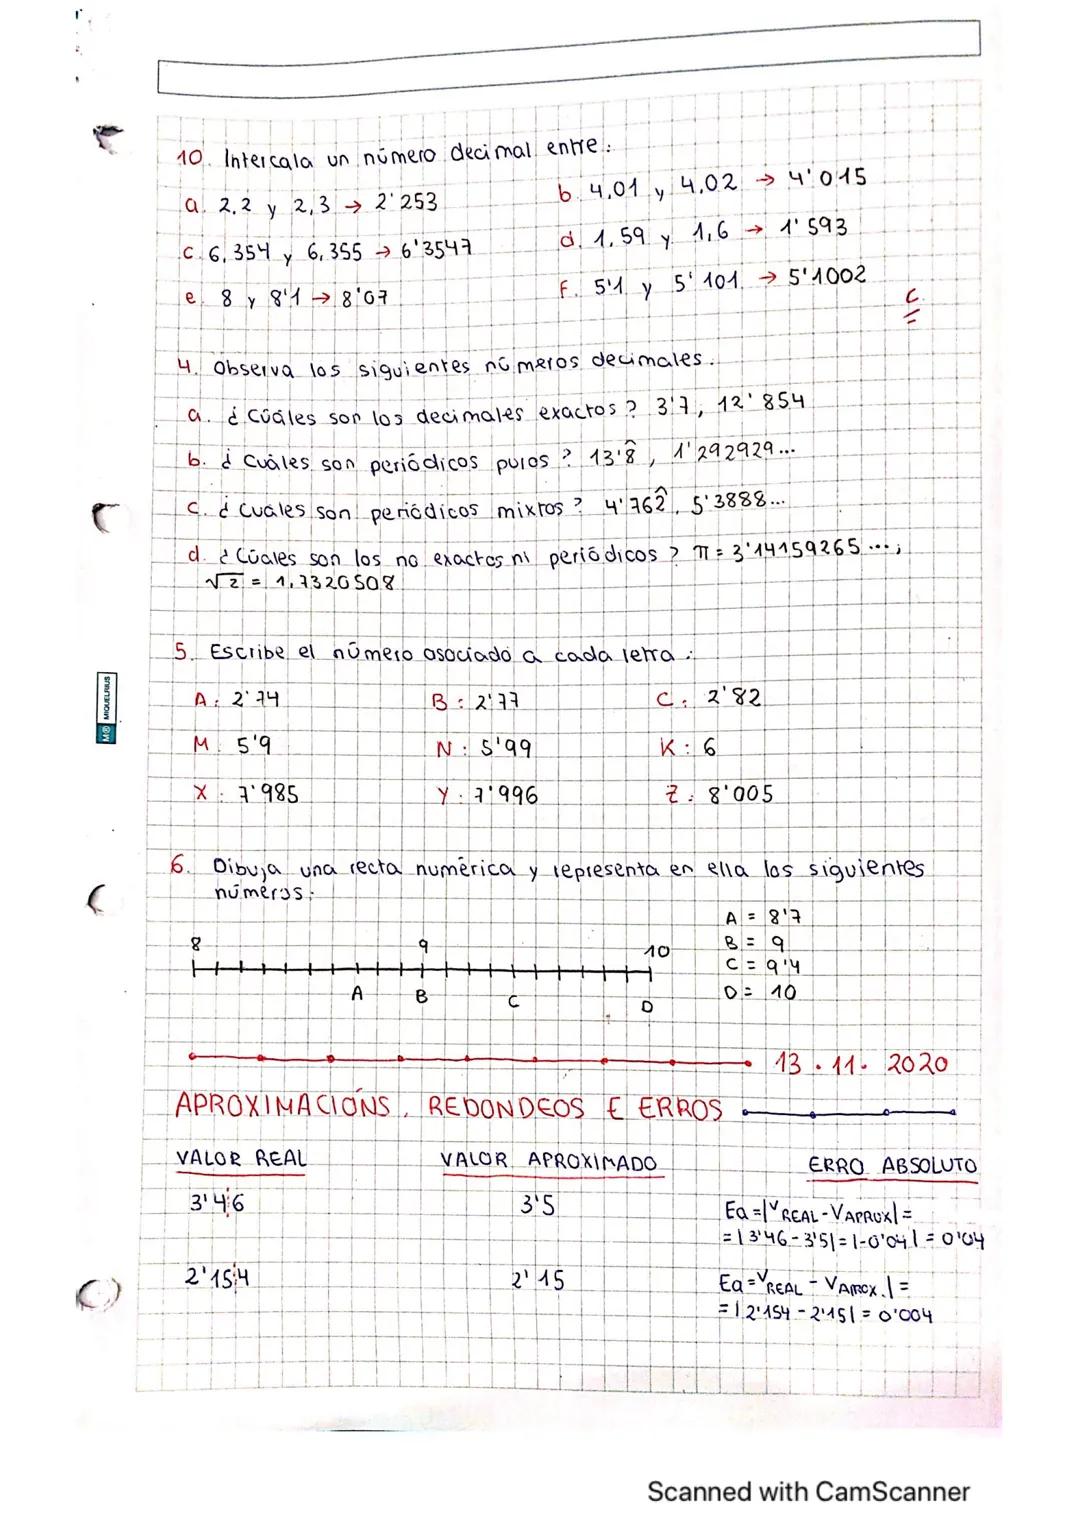 10. Intercala un número decimal entre:
a. 2,2 y 2,3 → 2'253
b. 4,01 y 4,02 → 4'015
c. 6,354 y 6,355 → 6'3547
d. 1,59 y 1,6 → 1'593
e. 8 y 8'1 → 8'07
f. 5'1 y 5'101 → 5'1002
C.
4. Observa los siguientes números decimales.
a. ¿Cúales son los decimales exactos? 3'7, 12'854
b. ¿Cuáles son periódicos puros? 13'8̂, 1'292929...
c. ¿Cuales son periódicos mixtos? 4'762̂, 5'3888...
d. ¿Cúales son los no exactos ni periódicos? π = 3'14159265...;
√2 = 1,7320508
5. Escribe el número asociado a cada letra:
A: 2'74 B: 2'77 C: 2'82
M: 5'9 N: 5'99 K: 6
X: 7'985 Y: 7'996 Z: 8'005
MIQUELRIUS
6. Dibuja una recta numérica y representa en ella los siguientes
números:
8 9 10
A B C D
A = 8'7
B = 9
C = 9'4
D = 10
13.11.2020
APROXIMACIÓNS, REDONDEOS E ERROS
VALOR REAL VALOR APROXIMADO ERRO ABSOLUTO
3'46 3'5 Ea=|VREAL-VAPROX|=
=|3'46-3'5|=|-0'04|=0'04
2'154 2'15 Ea=VREAL-VAPROX.|=
=|2'154-2'15|=0'004
Scanned with CamScanner